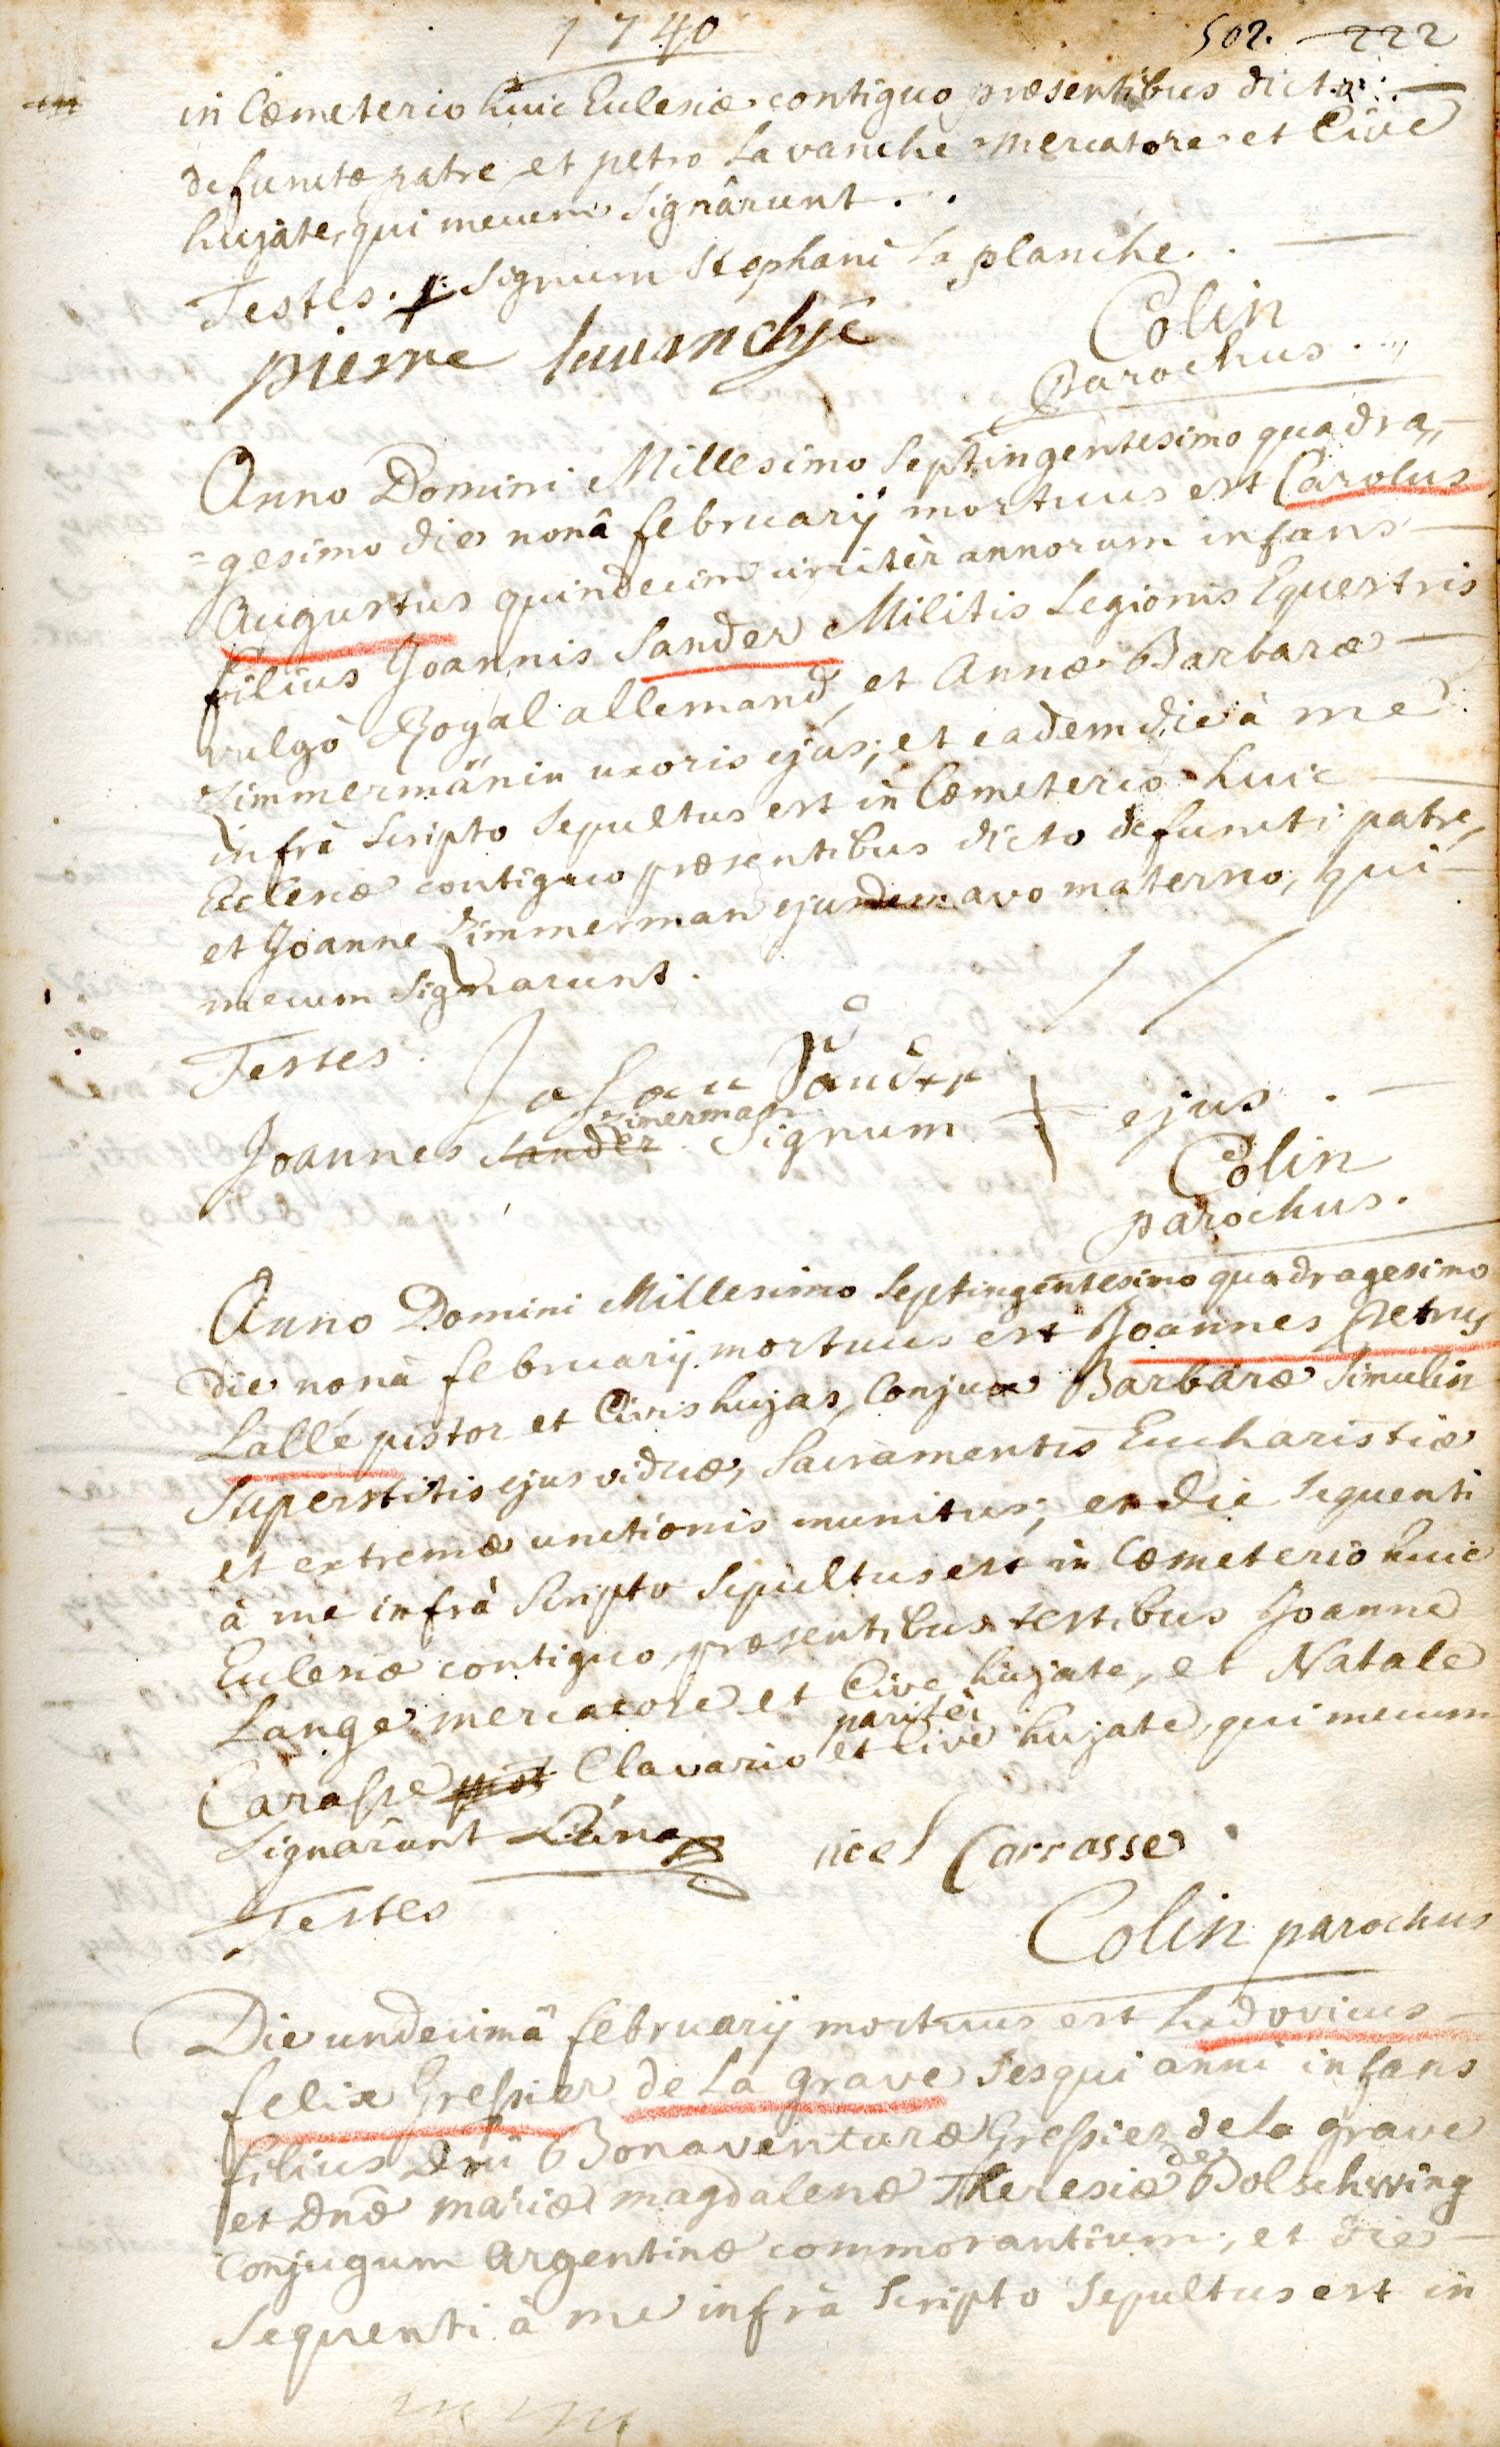 1740
502. 222
in Cœmeterio huic Ecclesiæ contiguo præsentibus dictæ
defunctæ patre et petro Lavanche mercatore et Cive
hujate, qui mecum signârunt.
Testes. signum Stephani La planche.
pierre lauanchje
Colin
Parochus
Anno Domini Millesimo septingentesimo quadra,,
=gesimo die nonâ februarij mortuus est Carolus
Augustus quindecim circitèr annorum infans
filius Joannis Sander Militis Legionis Equestris
vulgò Royal allemand, et Annæ Barbaræ
Zimmermänin uxoris ejus; et eadem die à me
infrà scripto sepultus est in Cœmeterio huic
Ecclesiæ contiguo præsentibus dicto defuncti patre,
et Joanne Zimmerman ejusdem avo materno, qui
mecum signarunt.
Testes
Johan Sander
Zimerman
Joannes Sander Signum + ejus
Colin
parochus.
Anno Domini Millesimo septingentesimo quadragesimo
die nonâ februarij mortuus est Joannes Petrus
Lallé pistor et Civis hujas, Conjux Barbaræ Simulin
superstitis ejus viduæ, Sacramentis Eucharistiæ
et extremæ unctionis munitus; et die sequenti
à me infrà Scripto sepultus est in Cœmeterio huic
Ecclesiæ contiguo, præsentibus testibus Joanne
Lange mercatore et Cive hujate, et Natale
pariter
Carasse Clavario et Cive hujate, qui mecum
signarunt
nicel Carrasse
Testes
Colin parochus
Die undecimâ februarij mortuus est Ludovicus
felix Gressier de La grave sesqui anni infans
filius Dni Bonaventuræ Gressier de La grave
et Dnæ mariæ magdalenæ Theresiæ de Bolschwing
Conjugum Argentinæ commorantium; et die
sequenti à me infrà scripto sepultus est in